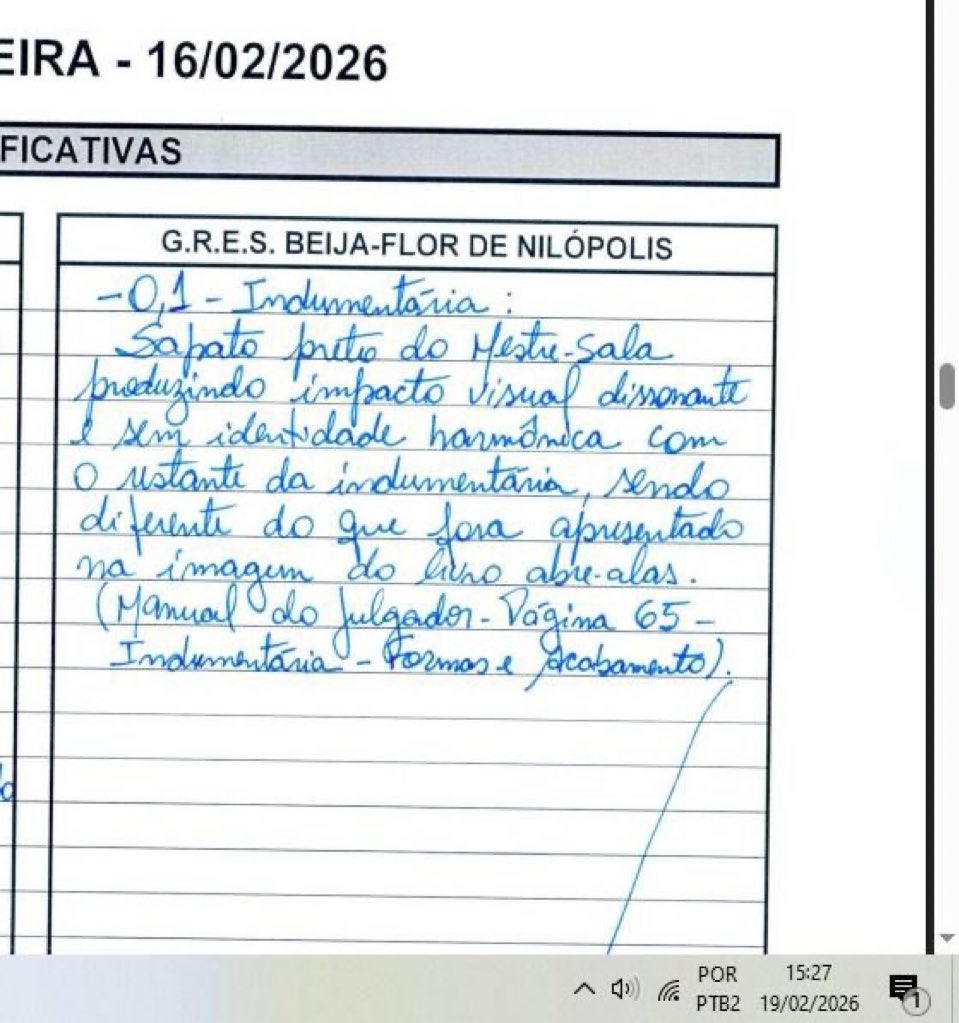 EIRA - 16/02/2026
FICATIVAS
G.R.E.S. BEIJA-FLOR DE NILÓPOLIS
-0,1 - Indumentária:
Sapato preto do Mestre-Sala
produzindo impacto visual dissonante
e sem identidade harmônica com
o restante da indumentária, sendo
diferente do que fora apresentado
na imagem do livro abre-alas.
(Manual do Julgador - Página 65 -
Indumentária - Formas e Acabamento).
POR 15:27
PTB2 19/02/2026
1